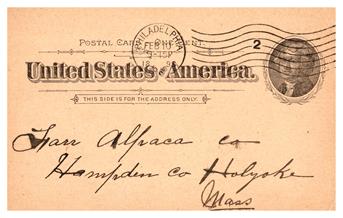 PHILADELPHIA
FEB 10
5-15P
2
POSTAL CARD
United States of America.
THIS SIDE IS FOR THE ADDRESS ONLY.
Farr Alpaca co
Hampden co Holyoke
Mass